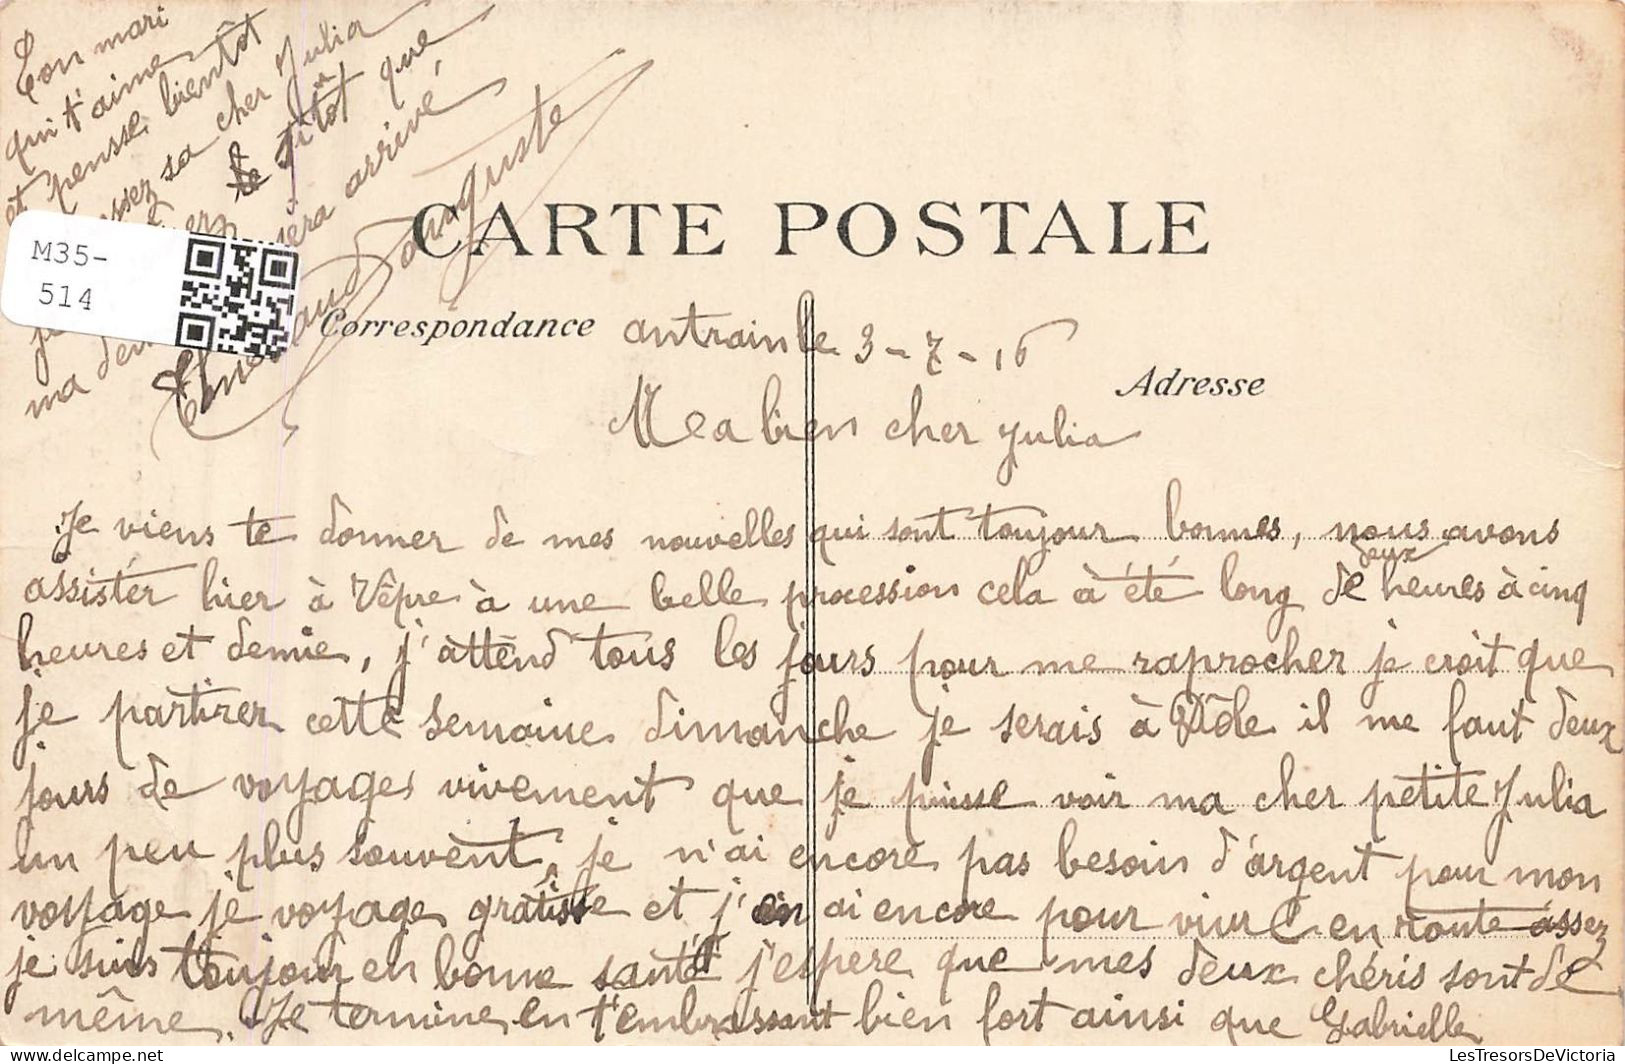 CARTE POSTALE
Correspondance
Adresse
antrain le 3-7-16
Mea bien cher Julia
Je viens te donner de mes nouvelles qui sont toujour bonnes, nous avons
assister hier à Vêpre à une belle procession cela à été long de deux heures à cinq
heures et demie, j'attend tous les jours pour me raprocher je croit que
je partirer cette semaine dimanche je serais à Dôle il me faut deux
jours de voyages vivement que je puisse voir ma cher petite Julia
un peu plus souvent, je n'ai encore pas besoin d'argent pour mon
voyage je voyage gratisse et j'en ai encore pour vivre en route assez
je suis toujour en bonne santé j'espere que mes deux chéris sont de
même. Je termine en t'embrassant bien fort ainsi que Gabrielle
Ton mari
qui t'aime
et pensse bientôt
sa cher Julia
sitôt que
sera arrivé
Auguste
M35-
514
LesTresorsDeVictoria